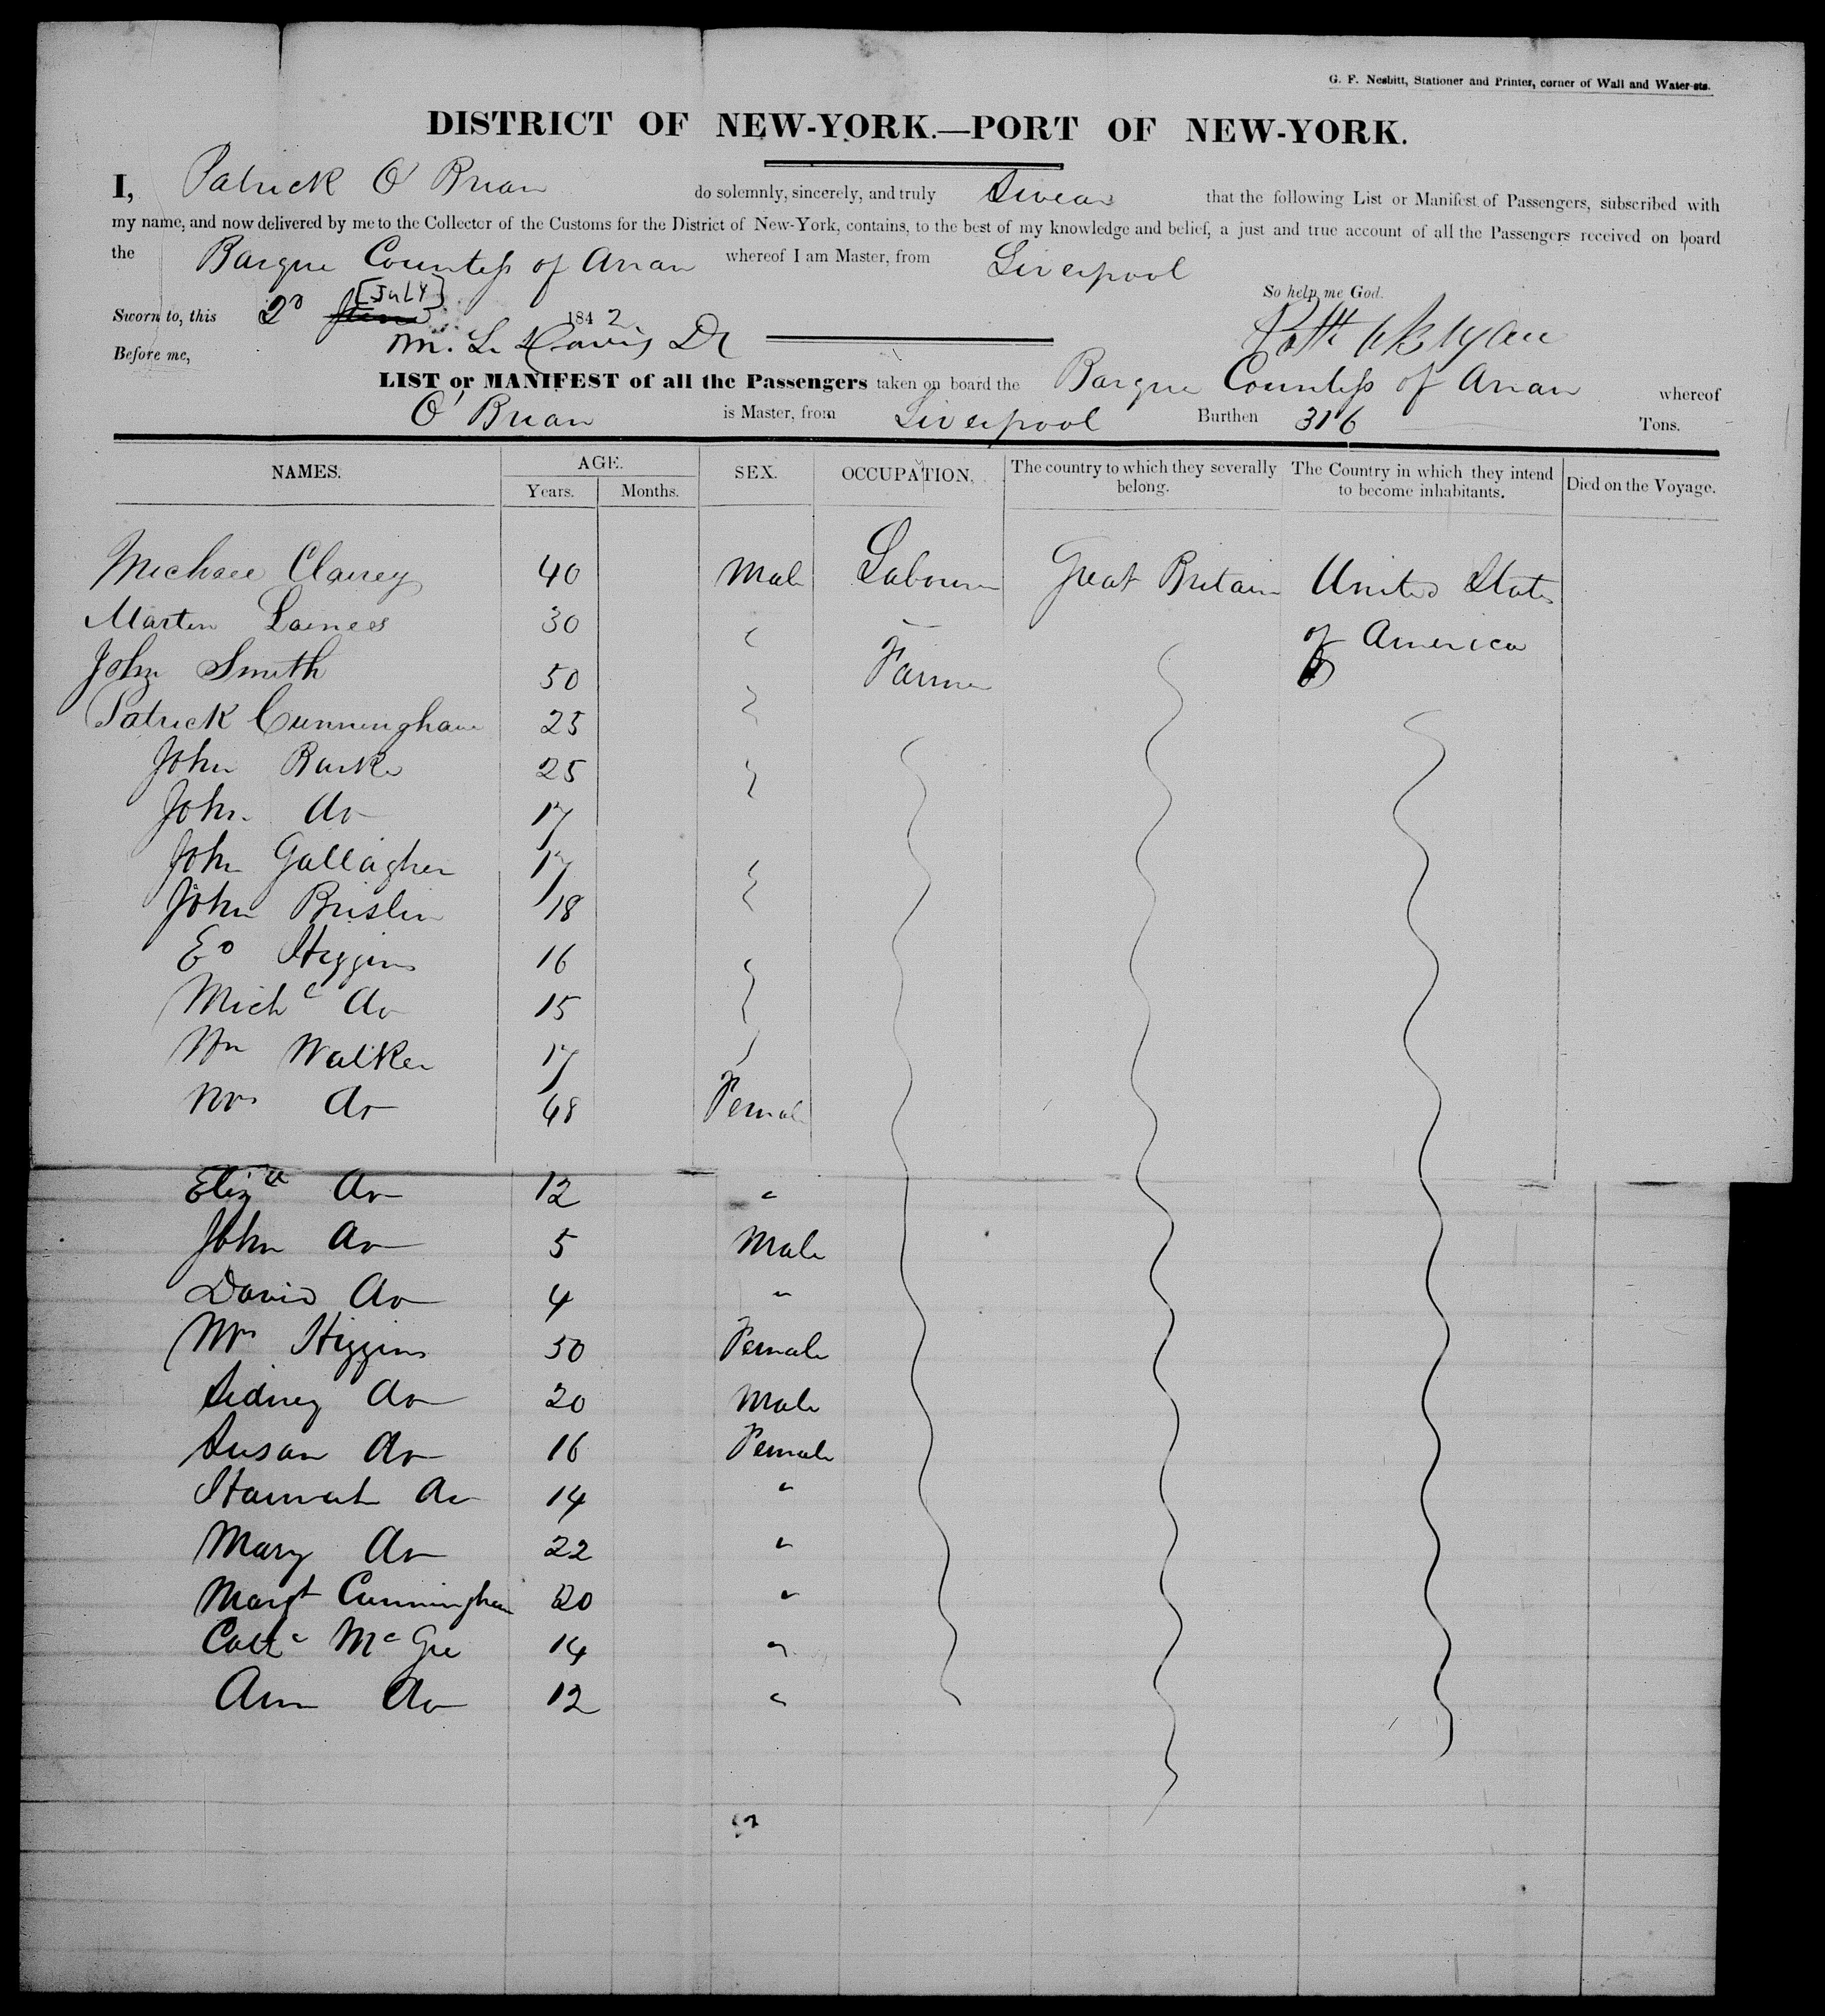 G. F. Nesbitt, Stationer and Printer, corner of Wall and Water-sts.
DISTRICT OF NEW-YORK.—PORT OF NEW-YORK.
I, Patrick O'Brian do solemnly, sincerely, and truly Swear that the following List or Manifest of Passengers, subscribed with
my name, and now delivered by me to the Collector of the Customs for the District of New-York, contains, to the best of my knowledge and belief, a just and true account of all the Passengers received on board
the Barque Countess of Arran whereof I am Master, from Liverpool
So help me God.
[JULY]
Sworn to, this 2d June 1842
Patk O'Brian
Before me, Davis
LIST or MANIFEST of all the Passengers taken on board the Barque Countess of Arran whereof
O'Brian is Master, from Liverpool Burthen 316 Tons.
NAMES. AGE. Years. Months. SEX. OCCUPATION. The country to which they severally belong. The Country in which they intend to become inhabitants. Died on the Voyage.
Michael Clancy 40 Male Labourer Great Britain United States
Martin 30 " of America
John Smith 50 Farmer
Patrick Cunningham 25
John Burke 25
John do 17
John Gallagher 17
John Brislin 18
Ed Higgins 16
Michl do 15
Wm Walker 17
Mrs do 48 Female
Elizth do 12 "
John do 5 Male
David do 4 "
Mrs Higgins 50 Female
Sidney do 20 Male
Susan do 16 Female
Hannah do 14 "
Mary do 22 "
Margt Cunningham 20 "
Cathe McGee 14 "
Ann do 12 "